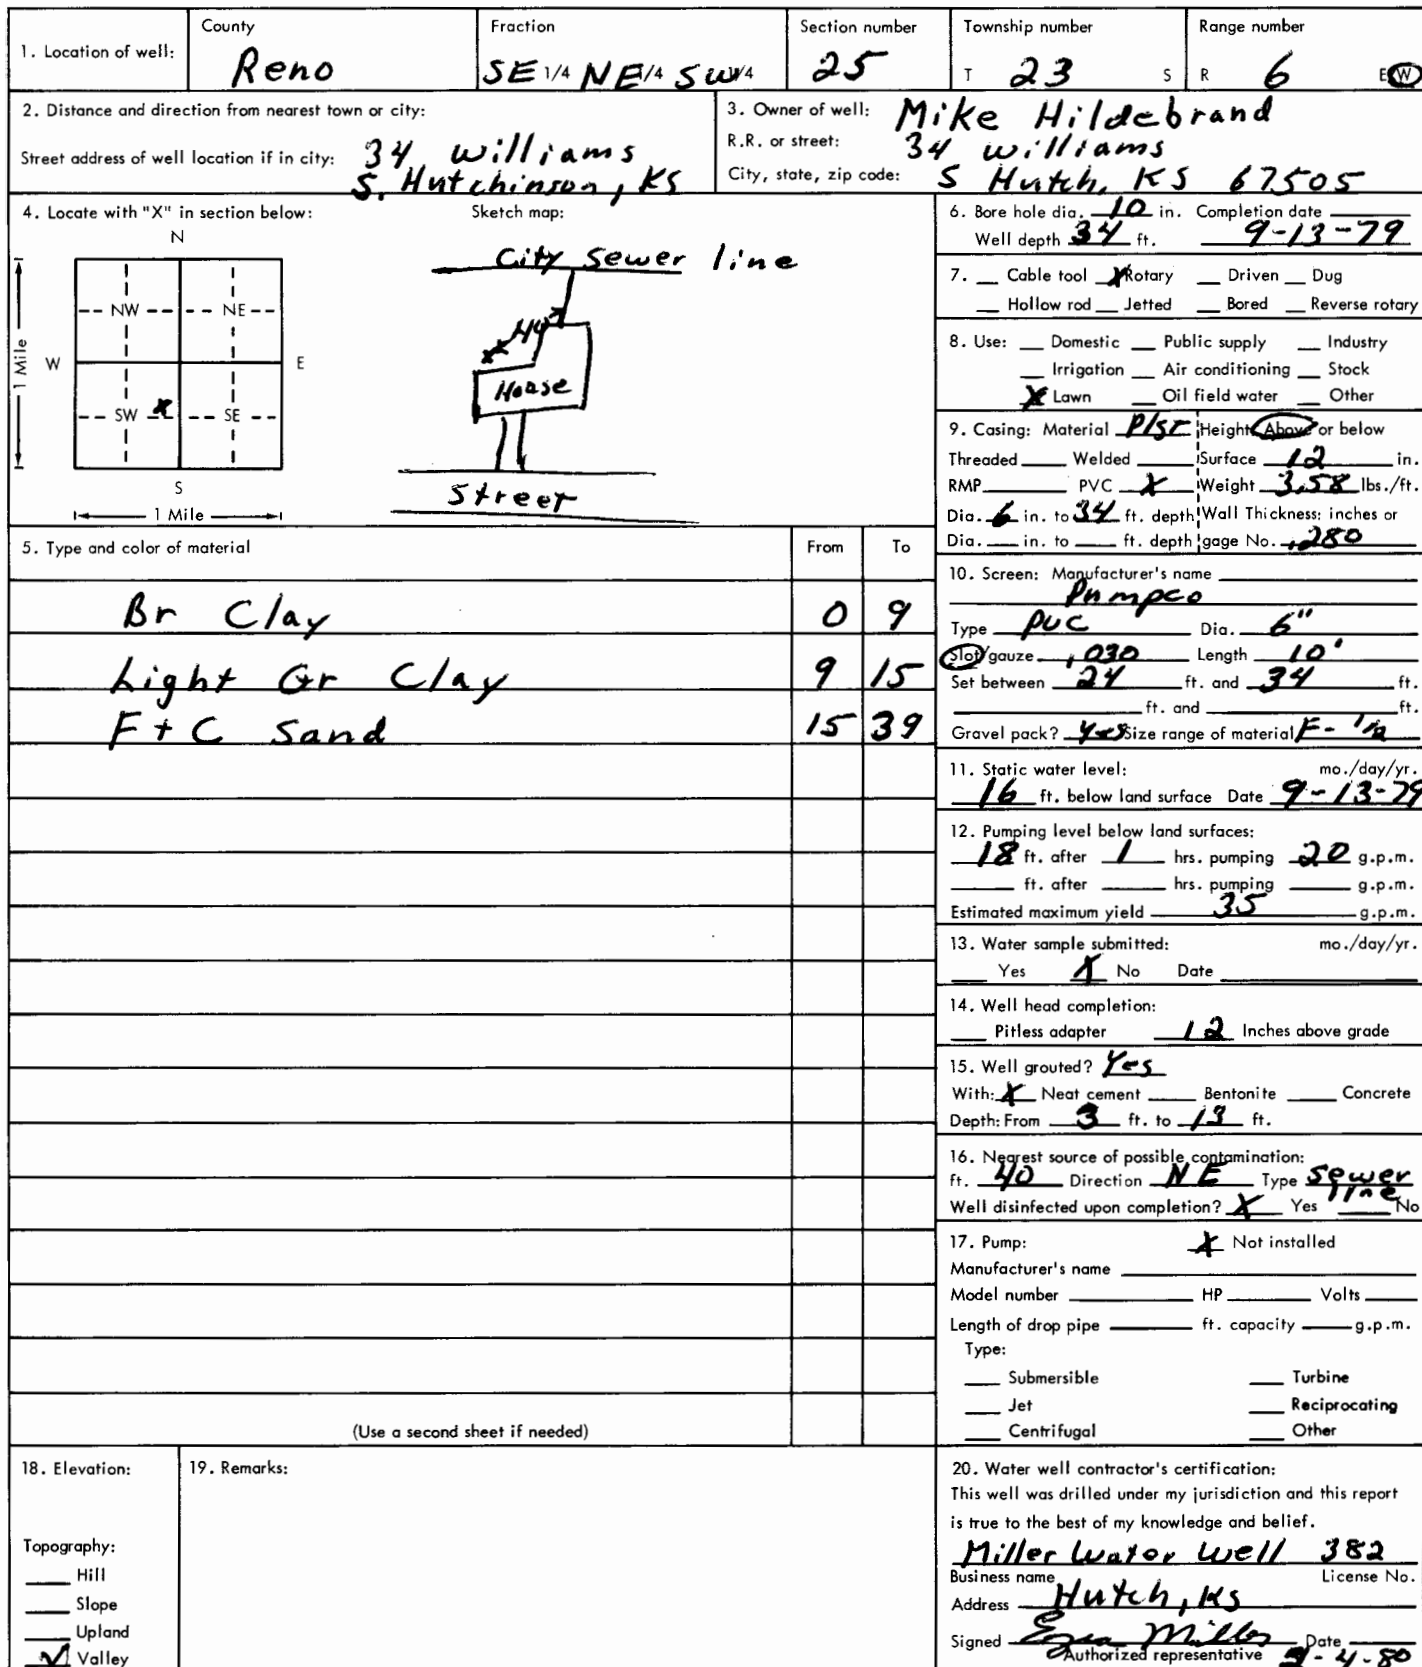 1. Location of well: County Reno Fraction SE 1/4 NE 1/4 SW 1/4 Section number 25 Township number T 23 S Range number R 6 E W
2. Distance and direction from nearest town or city:
Street address of well location if in city: 34 Williams
S. Hutchinson, KS
3. Owner of well: Mike Hildebrand
R.R. or street: 34 Williams
City, state, zip code: S Hutch, KS 67505
4. Locate with "X" in section below:
N
NW NE
W E
SW X SE
S
1 Mile
1 Mile
Sketch map:
City Sewer line
40'
X
House
Street
5. Type and color of material From To
Br Clay 0 9
Light Gr Clay 9 15
F + C Sand 15 39
(Use a second sheet if needed)
6. Bore hole dia. 10 in. Completion date
Well depth 34 ft. 9-13-79
7. Cable tool X Rotary Driven Dug
Hollow rod Jetted Bored Reverse rotary
8. Use: Domestic Public supply Industry
Irrigation Air conditioning Stock
X Lawn Oil field water Other
9. Casing: Material Plst Height: Above or below
Threaded Welded Surface 12 in.
RMP PVC X Weight 3.58 lbs./ft.
Dia. 6 in. to 34 ft. depth Wall Thickness: inches or
Dia. in. to ft. depth gage No. .280
10. Screen: Manufacturer's name
Pumpco
Type PVC Dia. 6"
Slot/gauze .030 Length 10'
Set between 24 ft. and 34 ft.
ft. and ft.
Gravel pack? Yes Size range of material F-
11. Static water level: mo./day/yr.
16 ft. below land surface Date 9-13-79
12. Pumping level below land surfaces:
18 ft. after 1 hrs. pumping 20 g.p.m.
ft. after hrs. pumping g.p.m.
Estimated maximum yield 35 g.p.m.
13. Water sample submitted: mo./day/yr.
Yes X No Date
14. Well head completion:
Pitless adapter 12 Inches above grade
15. Well grouted? Yes
With: X Neat cement Bentonite Concrete
Depth: From 3 ft. to 13 ft.
16. Nearest source of possible contamination:
ft. 40 Direction NE Type Sewer
line
Well disinfected upon completion? X Yes No
17. Pump: X Not installed
Manufacturer's name
Model number HP Volts
Length of drop pipe ft. capacity g.p.m.
Type:
Submersible Turbine
Jet Reciprocating
Centrifugal Other
18. Elevation:
Topography:
Hill
Slope
Upland
Valley
19. Remarks:
20. Water well contractor's certification:
This well was drilled under my jurisdiction and this report
is true to the best of my knowledge and belief.
Miller Water Well 382
Business name License No.
Address Hutch, KS
Signed Miller Date
Authorized representative -4-80